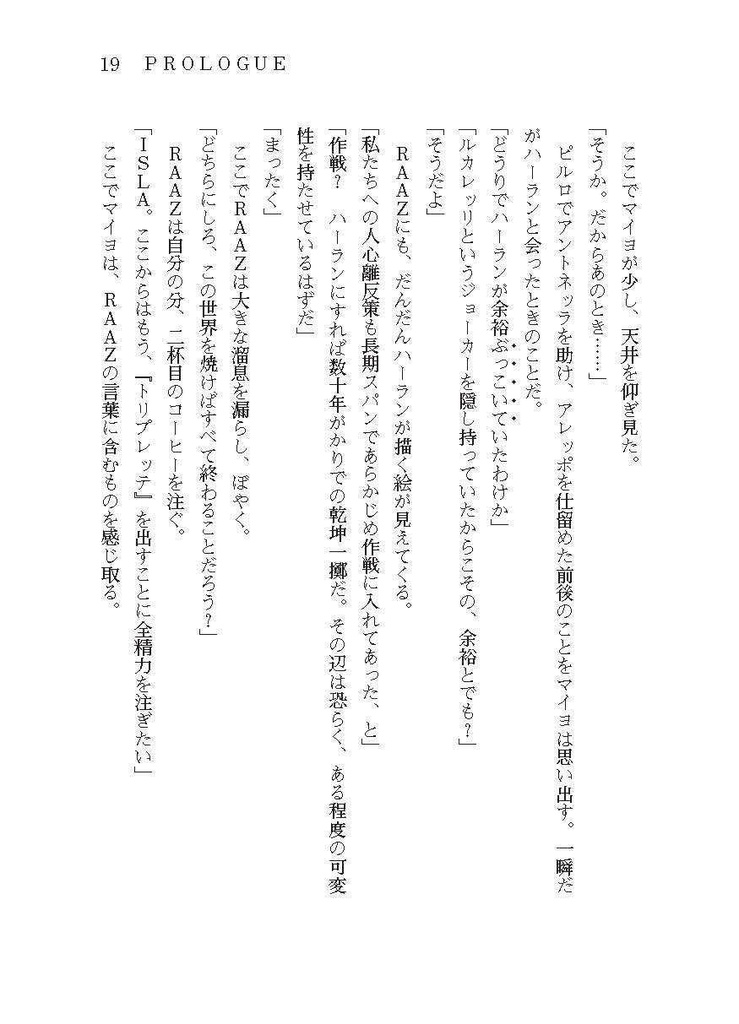 19 PROLOGUE
ここでマイヨが少し、天井を仰ぎ見た。
「そうか。だからあのとき……」
ピルロでアントネッラを助け、アレッポを仕留めた前後のことをマイヨは思い出す。一瞬だ
がハーランと会ったときのことだ。
「どうりでハーランが余裕ぶっこいていたわけか」
「ルカレッリというジョーカーを隠し持っていたからこその、余裕とでも？」
「そうだよ」
RAAZにも、だんだんハーランが描く絵が見えてくる。
「私たちへの人心離反策も長期スパンであらかじめ作戦に入れてあった、と」
「作戦？　ハーランにすれば数十年がかりでの乾坤一擲だ。その辺は恐らく、ある程度の可変
性を持たせているはずだ」
「まったく」
ここでRAAZは大きな溜息を漏らし、ぼやく。
「どちらにしろ、この世界を焼けばすべて終わることだろう？」
RAAZは自分の分、二杯目のコーヒーを注ぐ。
「ISLA。ここからはもう、『トリプレッテ』を出すことに全精力を注ぎたい」
ここでマイヨは、RAAZの言葉に含むものを感じ取る。